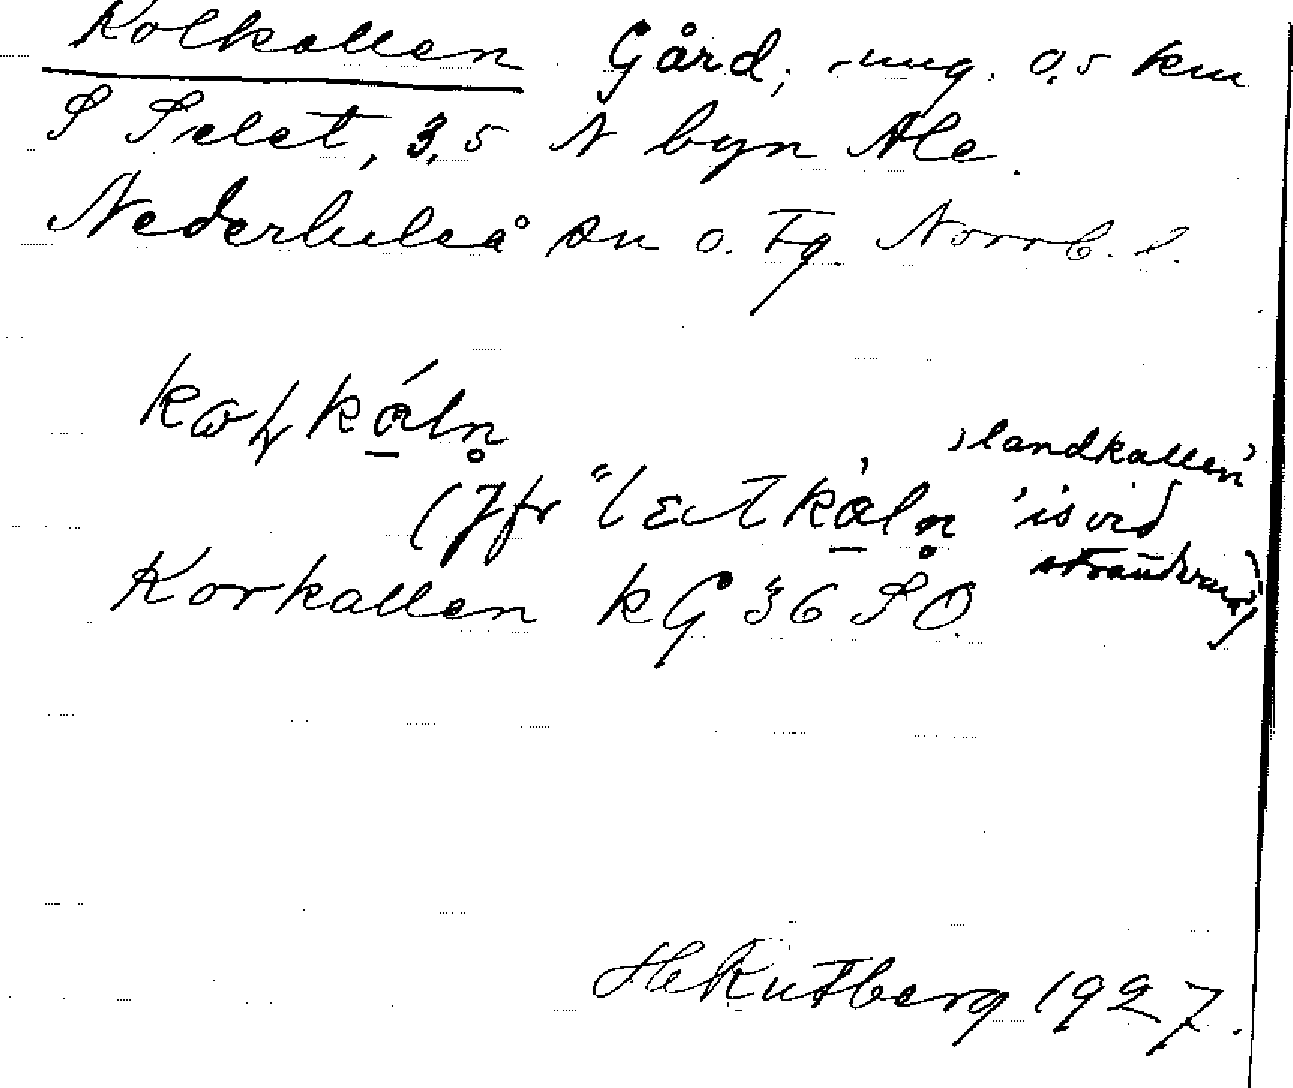 Kolkallen Gård, ung. 0,5 km
S Selet, 3,5 N byn Ale.
Nederluleå sn o. Tg Norrb. l.
kɷɽkáln̥
'landkallen'
(Jfr "lɛtkáln̥ 'is vid
stranden')
Korkallen kG 36 SO.
Hekutberg 1927.